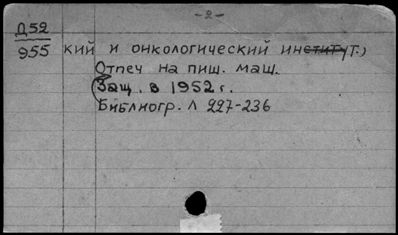 -2-
Д52
955 кий и онкологический институт.)
Отпеч на пиш. маш.
Защ. в 1952 г.
Библиогр. л 227-236